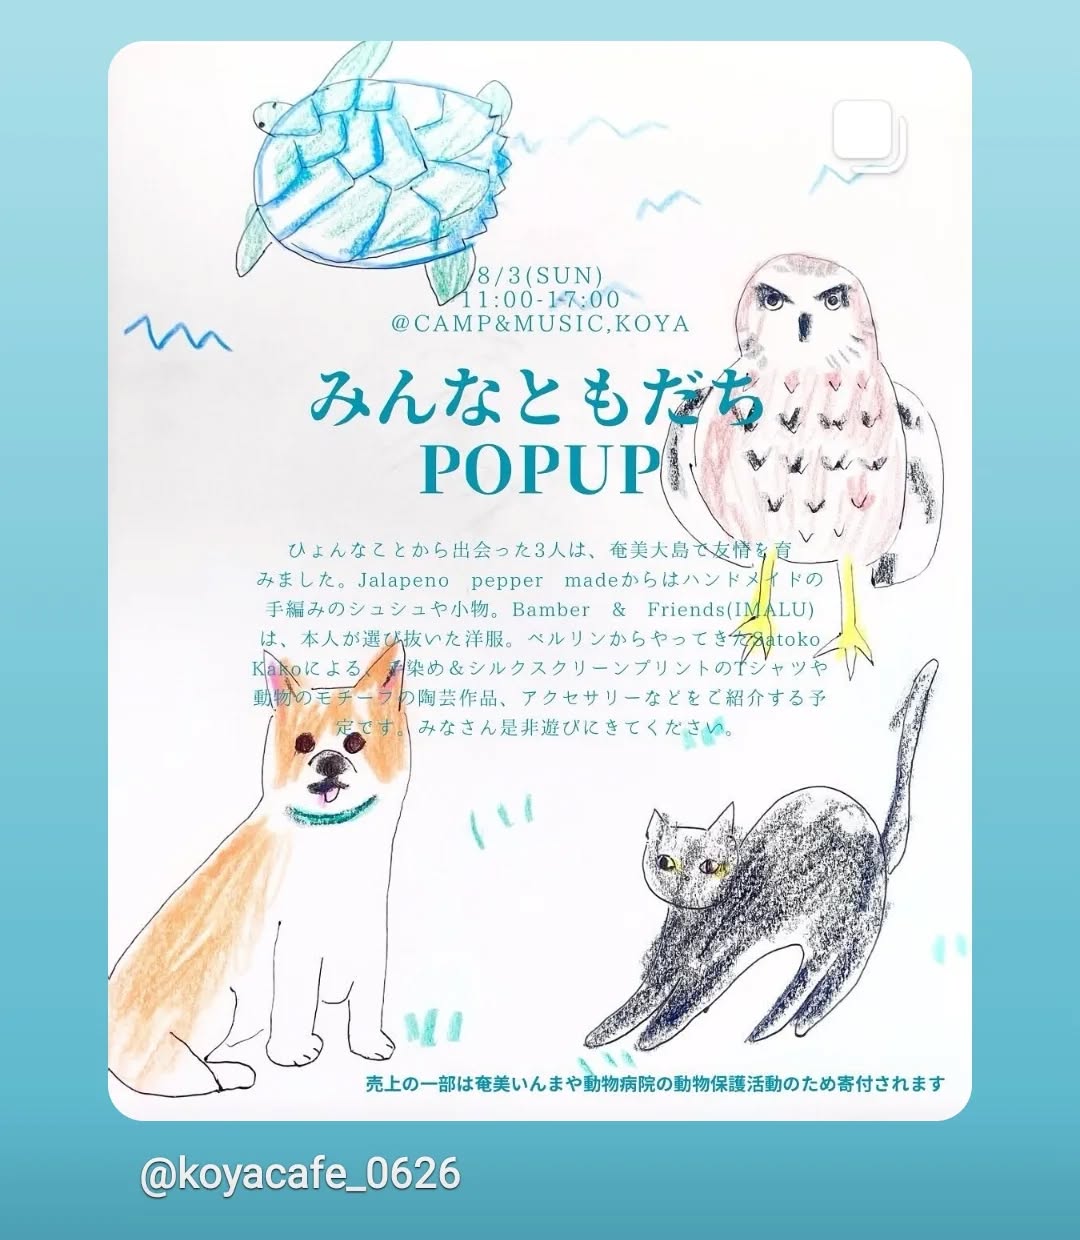 8/3(SUN)
11:00-17:00
@CAMP&MUSIC,KOYA
みんなともだち
POPUP
ひょんなことから出会った3人は、奄美大島で友情を育
みました。Jalapeno pepper madeからはハンドメイドの
手編みのシュシュや小物。Bamber & Friends(IMALU)
は、本人が選び抜いた洋服。ベルリンからやってきたSatoko
Kakoによる、手染め＆シルクスクリーンプリントのTシャツや
動物のモチーフの陶芸作品、アクセサリーなどをご紹介する予
定です。みなさん是非遊びにきてください。
売上の一部は奄美いんまや動物病院の動物保護活動のため寄付されます
@koyacafe_0626